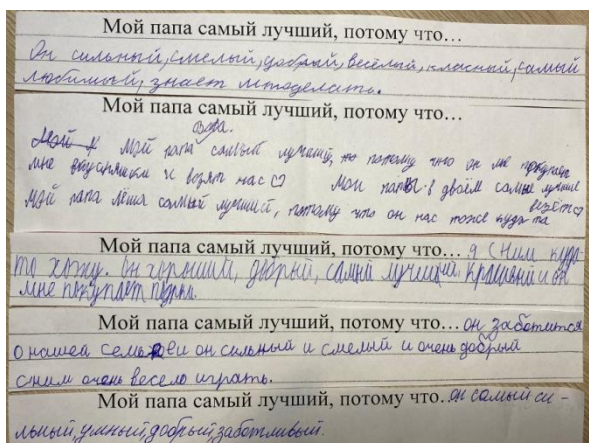 Мой папа самый лучший, потому что…
Он сильный, смелый, добрый, весёлый, класный, самый
любимый, знает что делать.
Мой папа самый лучший, потому что…
Вова.
Мой папа самый лучший, потому что он мне покупает
мне вкусняшки и возит нас♡ Мои папы в двоём самые лучшие
Мой папа лёша самый лучший, потому что он нас тоже куда та
везёт♡
Мой папа самый лучший, потому что… я с ним куда-
то хожу. он хороший, добрый, самый лучший, красивый и он
мне покупает
Мой папа самый лучший, потому что… он заботится
о нашей семье и он сильный и смелый и очень добрый
с ним очень весело играть.
Мой папа самый лучший, потому что… он самый си-
льный, умный, добрый, заботливый.